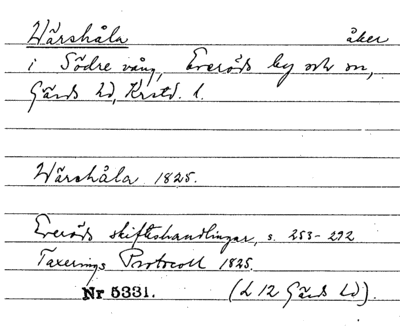 Wärshåla åker
i Södre vång, Everöds by och sn,
Gärds hd, Krstd. l.
Wärshåla 1825.
Everöds skifteshandlingar, s. 253-292
Taxerings Protocoll 1825.
Nr 5331. (L 12 Gärds hd).